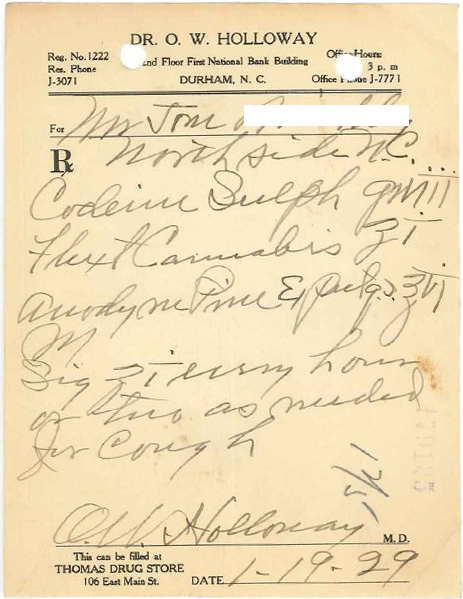 DR. O. W. HOLLOWAY
Reg. No. 1222 2nd Floor First National Bank Building Office Hours:
Res. Phone 3 p. m
J-3071 DURHAM, N. C. Office Phone J-7771
For Mr Tom
North side N.C.
℞
Codeine Sulph gr VIII
Flext Cannabis ʒ I
Anodyne Pine Expect q.s. ʒ VI
M
Sig ʒ I every hour
or two as needed
for Cough
O.W. Holloway M. D.
This can be filled at
THOMAS DRUG STORE
106 East Main St. DATE 1-19-29